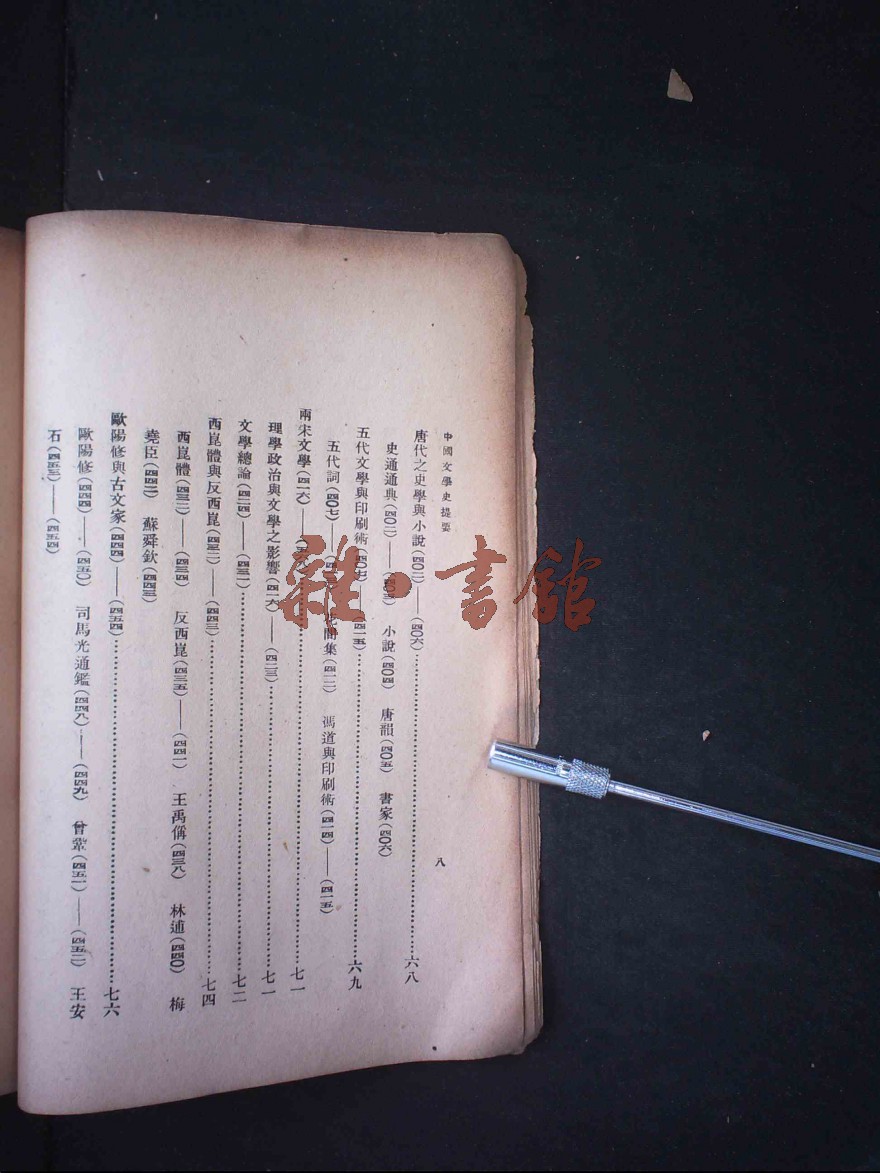 中國文學史提要
八
唐代之史學與小說(四〇二)——(四〇六)……六八
史通通典(四〇二)——(四〇三) 小說(四〇四) 唐韻(四〇五) 書家(四〇六)
五代文學與印刷術(四〇七)——(四一五)……六九
五代詞(四〇七)—— 花間集(四一二) 馮道與印刷術(四一四)——(四一五)
兩宋文學(四一六)——……七一
理學政治與文學之影響(四一六)——(四二三)……七一
文學總論(四二四)——(四三一)……七二
西崑體與反西崑(四三二)——(四四三)……七四
西崑體(四三二)——(四三四) 反西崑(四三五)——(四四一) 王禹偁(四三八) 林逋(四四〇) 梅
堯臣(四四二) 蘇舜欽(四四三)
歐陽修與古文家(四四四)——(四五四)……七六
歐陽修(四四四)——(四五〇) 司馬光通鑑(四四八)——(四四九) 曾鞏(四五一)——(四五二) 王安
石(四五三)——(四五四)
雜·書館